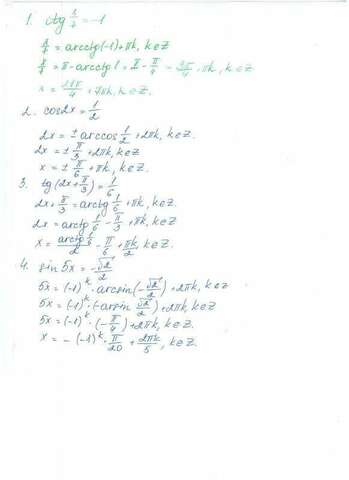 1. ctg x/7 = -1
x/7 = arcctg(-1)+πk, k∈Z
x/7 = π - arcctg1 = π - π/4 = 3π/4 + πk, k∈Z
x = 21π/4 + 7πk, k∈Z.
2. cos2x = 1/2
2x = ± arccos 1/2 + 2πk, k∈Z.
2x = ± π/3 + 2πk, k∈Z
x = ± π/6 + πk, k∈Z.
3. tg(2x + π/3) = 1/6
2x + π/3 = arctg 1/6 + πk, k∈Z
2x = arctg 1/6 - π/3 + πk, k∈Z
x = arctg 1/6 / 2 - π/6 + πk/2, k∈Z
4. sin 5x = -√2/2
5x = (-1)^k · arcsin(-√2/2) + 2πk, k∈Z
5x = (-1)^k · (-arsin √2/2) + 2πk, k∈Z
5x = (-1)^k · (-π/4) + 2πk, k∈Z.
x = - (-1)^k · π/20 + 2πk/5, k∈Z.